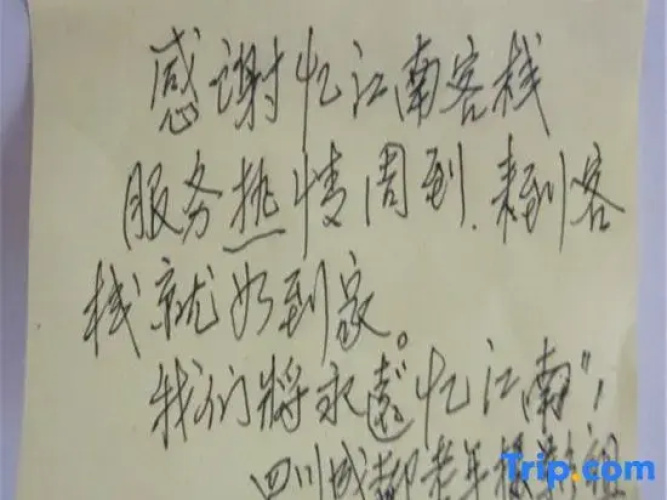 感谢忆江南客栈
服务热情周到.来到客
栈就如到家。
我们将永远忆江南",
四川成都老年摄影组
Trip.com